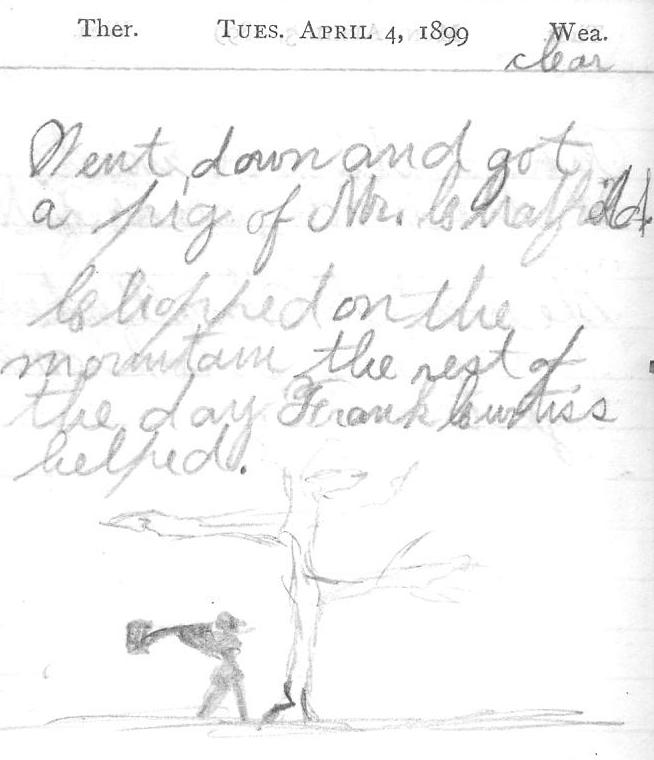 Ther. TUES. APRIL 4, 1899 Wea.
clear
Went down and got
a pig of Mr.
Chopped on the
mountain the rest of
the day Frank Curtiss
helped.